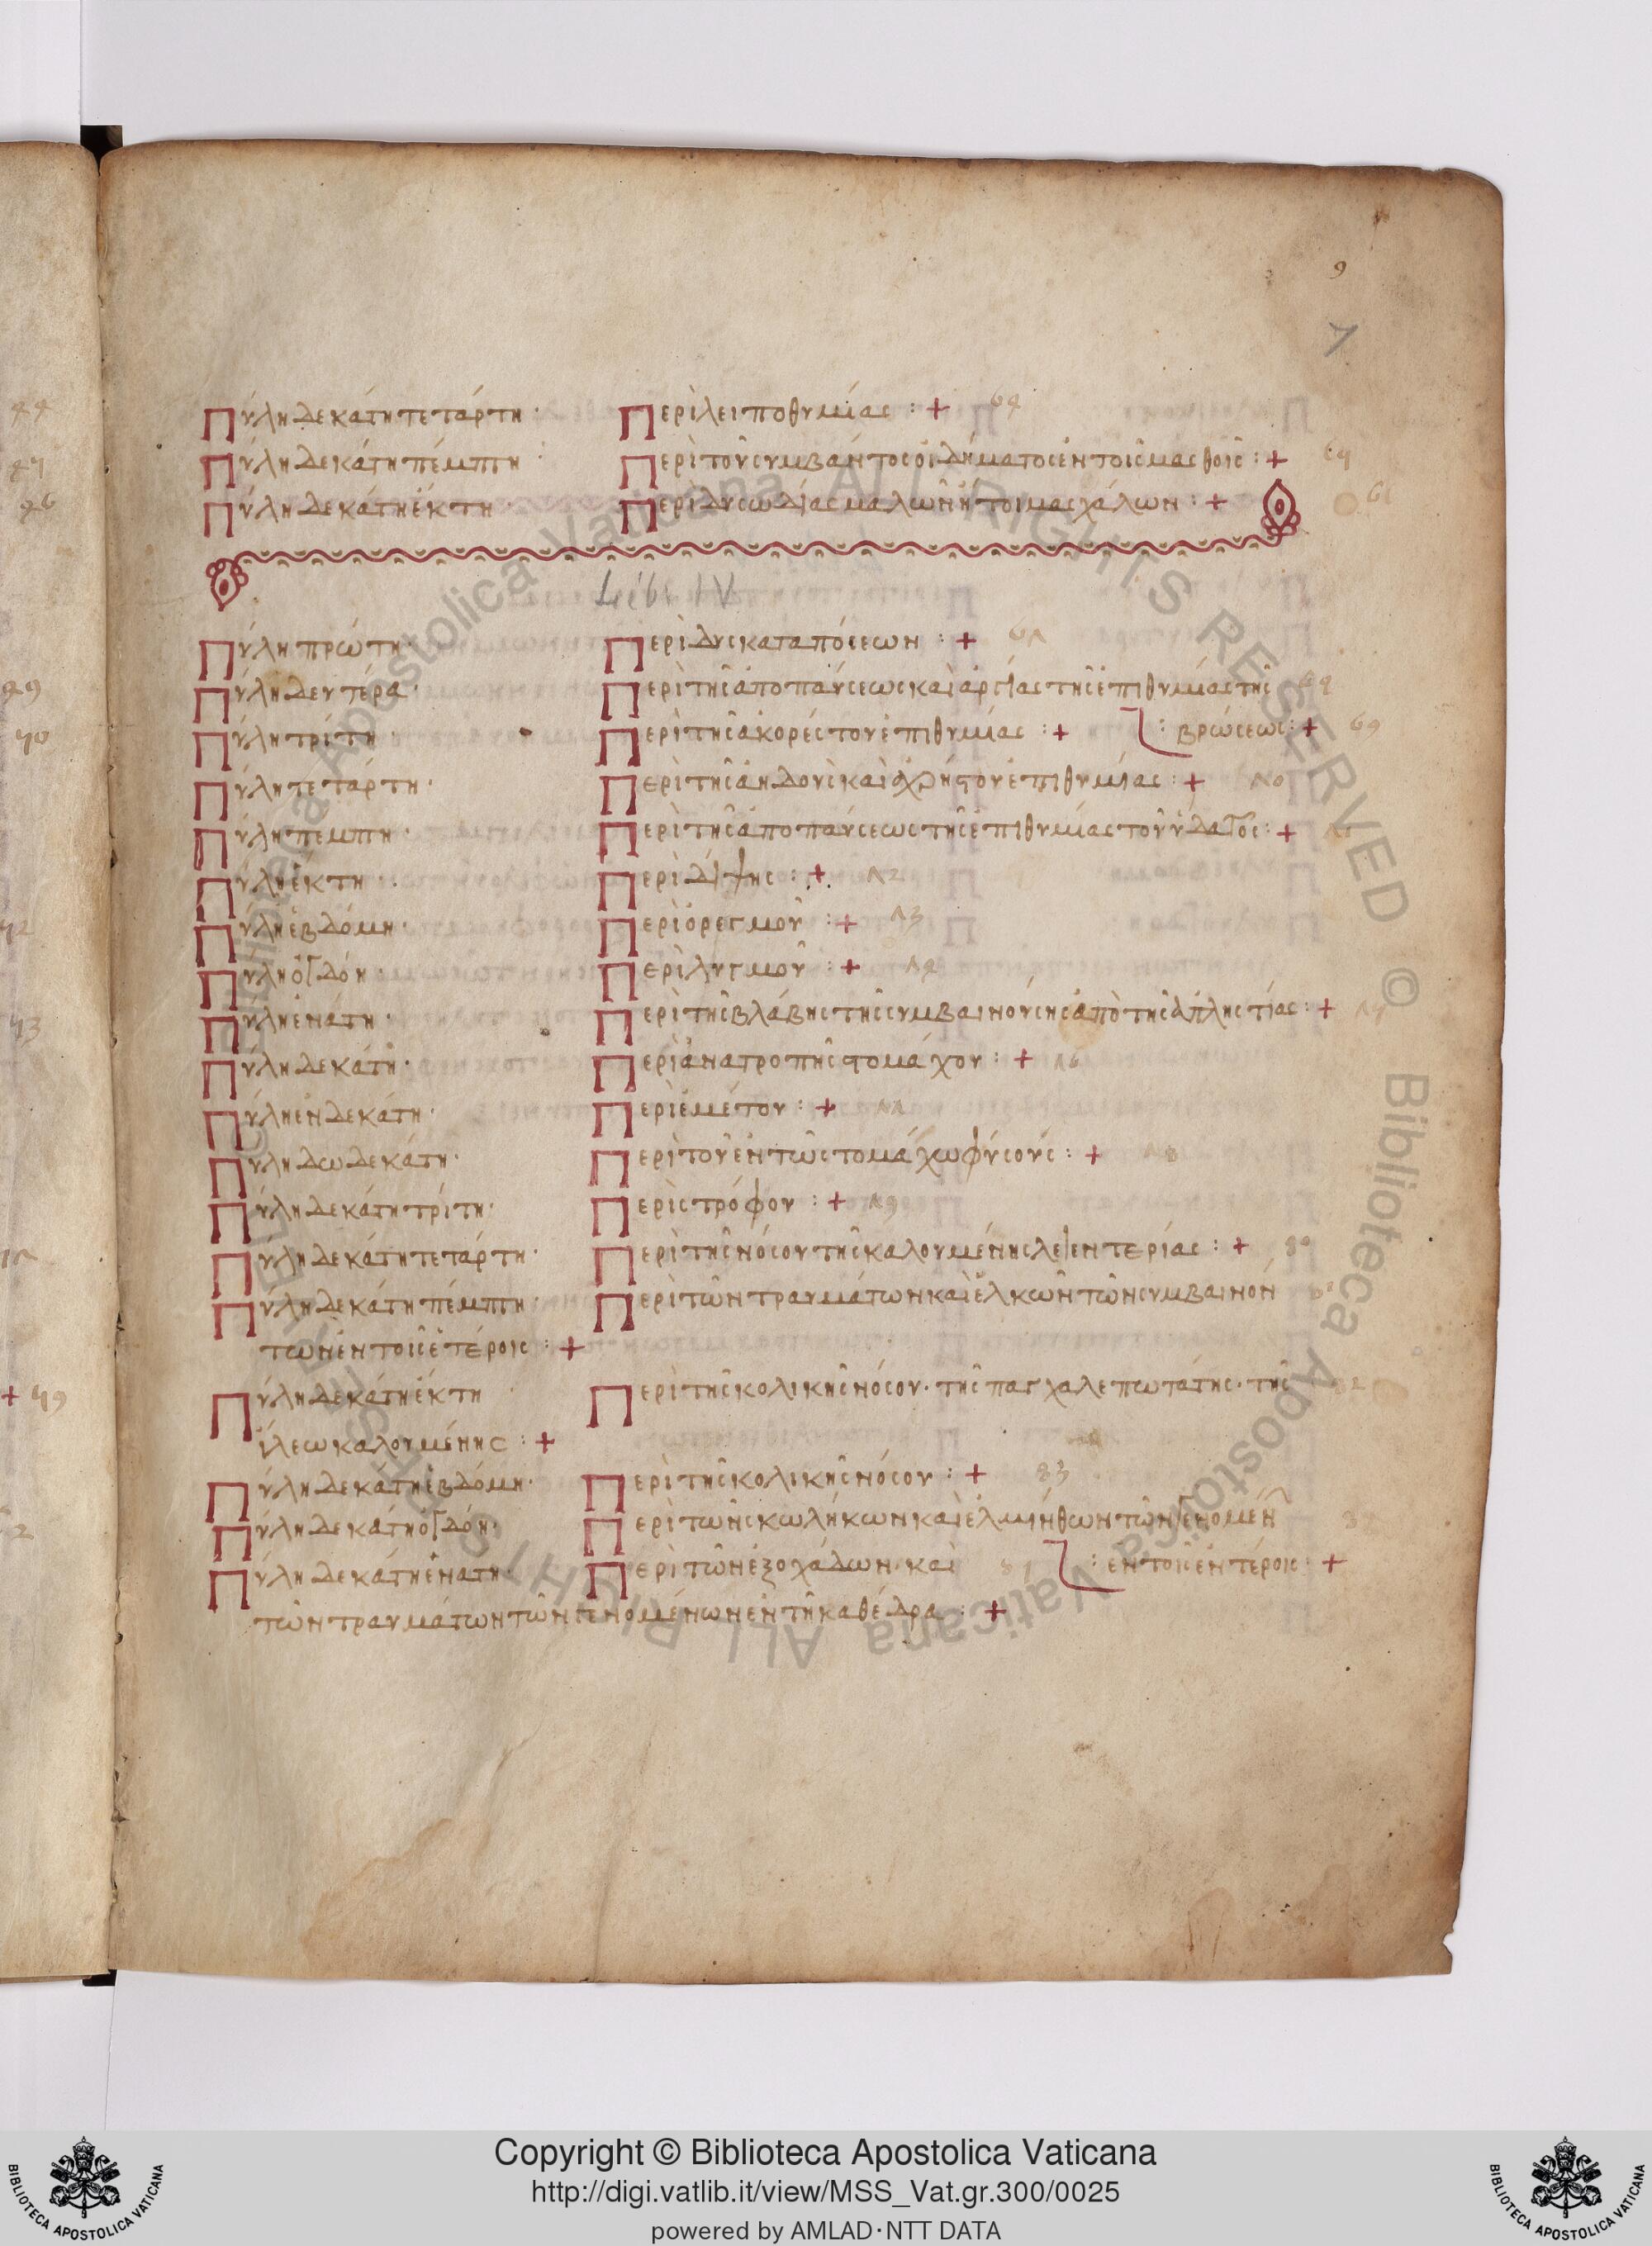 9
7
Πύλη δεκάτη τετάρτη · Περὶ λειποθυμίας : + 64
Πύλη δεκάτη πέμπτη · Περὶ τοῦ συμβάντος οἰδήματος ἐν τοῖς μασθοῖς : +
Πύλη δεκάτη ἕκτη · Περὶ δυσωδίας μαλῶν ἤτοι μασχάλων : +
Lib. IV
Πύλη πρώτη · Περὶ δυσκαταπόσεων : +
Πύλη δευτέρα · Περὶ τῆς ἀποπαύσεως καὶ ἀργίας τῆς ἐπιθυμίας τῆς
Πύλη τρίτη · Περὶ τῆς ἀκορέστου ἐπιθυμίας : + : βρώσεως : + 69
Πύλη τετάρτη · Περὶ τῆς ἀηδοῦς καὶ ἀχρήστου ἐπιθυμίας : +
Πύλη πέμπη · Περὶ τῆς ἀποπαύσεως τῆς ἐπιθυμίας τοῦ ὕδατος : +
Πύλη ἕκτη · Περὶ δίψης : +
Πύλη ἑβδόμη · Περὶ ὀρεγμοῦ : +
Πύλη ὀγδόη · Περὶ λυγμοῦ : +
Πύλη ἐνάτη · Περὶ τῆς βλάβης τῆς συμβαινούσης ἀπὸ τῆς ἀπληστίας : +
Πύλη δεκάτη · Περὶ ἀνατροπῆς στομάχου : +
Πύλη ἑνδεκάτη · Περὶ ἐμέτου : +
Πύλη δωδεκάτη · Περὶ τοῦ ἐν τῷ στομάχω φύσους : +
Πύλη δεκάτη τρίτη · Περὶ στρόφου : +
Πύλη δεκάτη τετάρτη · Περὶ τῆς νόσου τῆς καλουμένης λειεντερίας : +
Πύλη δεκάτη πέμπτη · Περὶ τῶν τραυμάτων καὶ ἑλκῶν τῶν συμβαινόν
των ἐν τοῖς ἑτέροις : +
Πύλη δεκάτη ἕκτη Περὶ τῆς κολικῆς νόσου · τῆς παγχαλεπωτάτης · τῆς
ἰλεω καλουμένης : +
Πύλη δεκάτη ἑβδόμη · Περὶ τῆς κολικῆς νόσου : + 83
Πύλη δεκάτη ὀγδόη · Περὶ τῶν σκωλήκων καὶ ἑλμίνθων τῶν γενομέν
Πύλη δεκάτη ἐνάτη · Περὶ τῶν ἐξοχάδων · καὶ : ἐν τοῖς ἐντέροις : +
τῶν τραυμάτων τῶν γενομένων ἐν τῆ καθέδρα : +
Copyright © Biblioteca Apostolica Vaticana
http://digi.vatlib.it/view/MSS_Vat.gr.300/0025
powered by AMLAD·NTT DATA